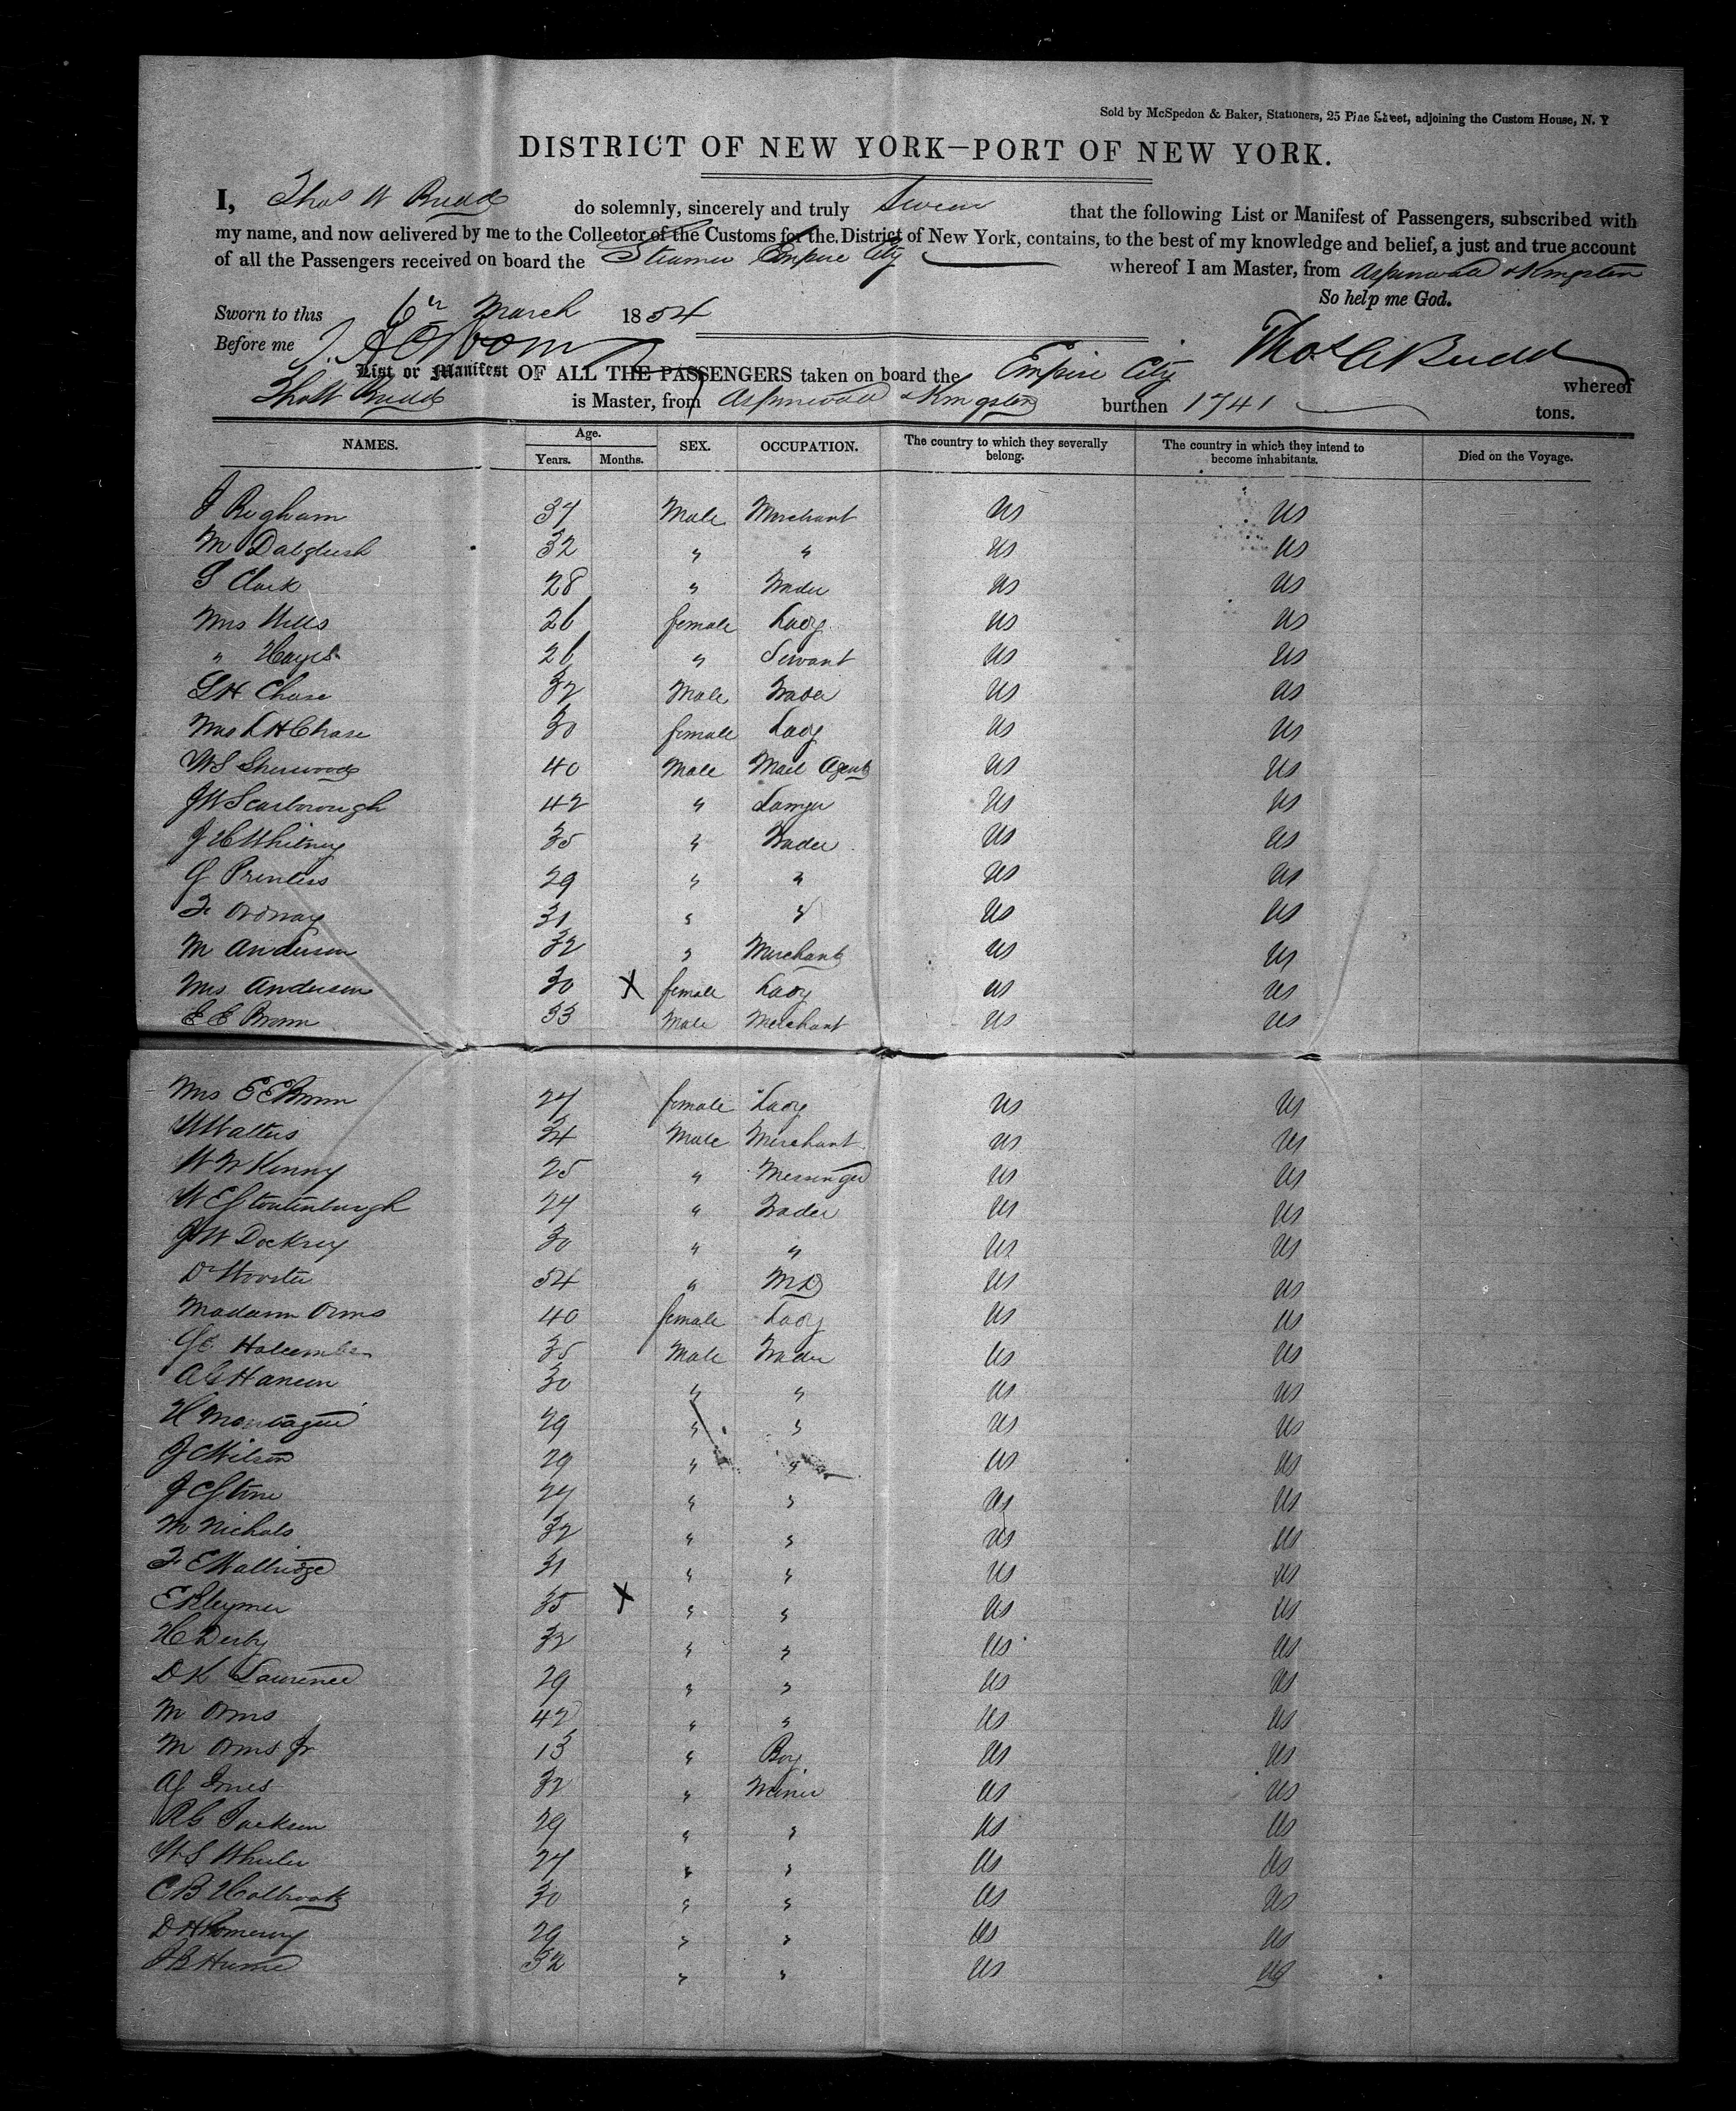 Sold by McSpedon & Baker, Stationers, 25 Pine Street, adjoining the Custom House, N. Y
DISTRICT OF NEW YORK—PORT OF NEW YORK.
I, Thos W Budd do solemnly, sincerely and truly Swear that the following List or Manifest of Passengers, subscribed with
my name, and now delivered by me to the Collector of the Customs for the District of New York, contains, to the best of my knowledge and belief, a just and true account
of all the Passengers received on board the Steamer Empire City whereof I am Master, from Aspinwall & Kingston
So help me God.
Sworn to this 6th March 1854
Before me Thos W Budd
List or Manifest OF ALL THE PASSENGERS taken on board the Empire City whereof
Thos W Budd is Master, from Aspinwall & Kingston burthen 1741 tons.
NAMES. Age. Years. Months. SEX. OCCUPATION. The country to which they severally belong. The country in which they intend to become inhabitants. Died on the Voyage.
J Bigham 37 Male Merchant US US
M Dalglush 32 " " US US
S Clark 28 " Trader US US
Mrs Wells 26 female Lady US US
" Hayes 26 " Servant US US
L H Chase 32 Male Trader US US
Mrs L H Chase 30 female Lady US US
W S Sherwood 40 Male Mail Agent US US
J W Scarborough 42 " Lawyer US US
J H Whitney 35 " Trader US US
G Prentiss 29 " " US US
F Ordway 31 " " US US
M Anderson 32 " Merchant US US
Mrs Anderson 30 X female Lady US US
E E Brown 33 Male Merchant US US
Mrs E E Brown 27 female Lady US US
W Walters 34 Male Merchant US US
W W Kenny 25 " Messenger US US
W E Stoutenburgh 27 " Trader US US
J W Dockrey 30 " " US US
Dr Wooster 54 " MD US US
Madam Orms 40 female Lady US US
G E Holcombe 35 Male Trader US US
A C Hanson 30 " " US US
H Montague 29 " " US US
J C Wilson 29 " " US US
J C Stone 27 " " US US
M Nichols 32 " " US US
F E Walbridge 31 " " US US
E Kleymer 35 X " " US US
H Derby 32 " " US US
D K Lawrence 29 " " US US
M Orms 42 " " US US
M Orms Jr 13 " Boy US US
32 " US US
R G Jackson 29 " " US US
W S Wheeler 27 " " US US
C B Holbrook 30 " " US US
D H Pomeroy 29 " " US US
J B Hume 32 " " US US